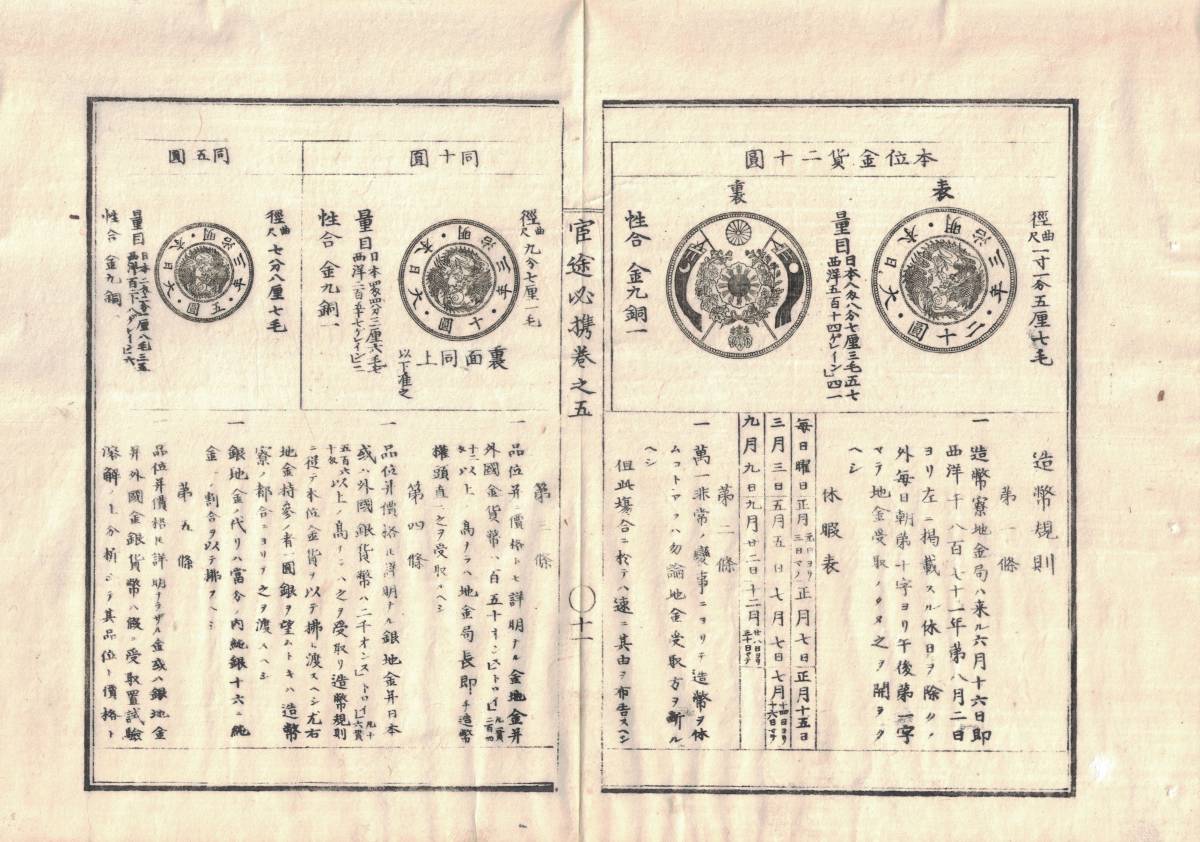 本位金貨二十圓
徑曲尺一寸一分五厘七毛
表
大日本・明治三年・二十圓・
量目日本八匁八分七厘三毛五七
西洋五百十四ゲレイン四一
裏
性合 金九銅一
造幣規則
第一條
一 造幣寮地金局ハ来ル六月十六日即
西洋千八百七十一年第八月二日
ヨリ左ニ掲載スル休日ヲ除クノ
外毎日朝第十字ヨリ午後第一字
マテ地金受取ノタメ之ヲ開ラク
ヘシ
休暇表
毎日曜日 正月元日ヨリ三日マテ 正月七日 正月十五日
三月三日 五月五日 七月七日 七月十四日ヨリ十六日マテ
九月九日 九月廿二日 十二月廿八日ヨリ三十日マテ
第二條
一 萬一非常ノ變事ニヨリテ造幣ヲ休
ムコトアラハ勿論地金受取方ヲ斷ル
ヘシ
但此場合ニ於テハ速ニ其由ヲ布告スヘシ
官途必携巻之五
十一
同十圓
徑曲尺九分七厘一毛
大日本・明治三年・十圓・
裏面同上
以下准之
量目日本四匁四分三厘六毛
西洋二百五十七ゲレイン二
性合 金九銅一
同五圓
徑曲尺七分八厘七毛
大日本・明治三年・五圓・
量目
性合 金九銅一
第三條
一 品位并ニ價格トモ詳明ナル金地金并
外國金貨幣ハ百五十オンス
以上ノ高ナラハ地金局長即チ造幣
權頭直ニ之ヲ受取ルヘシ
第四條
一 品位并價格トモ詳明ナル銀地金并日本
或ハ外國銀貨幣ハ二千オンス「トロイ」
以上ノ高ナレハ之ヲ受取リ造幣規則
ニ從テ本位金貨ヲ以テ拂ヒ渡スヘシ尤右
地金持參ノ者一圓銀ヲ望ムトキハ造幣
寮ノ都合ニヨリテ之ヲ渡スヘシ
銀地金ノ代リハ當分ノ内純銀十六ニ純
金一ノ割合ヲ以テ拂フヘシ
第五條
一 品位并價格トモ詳明ナラザル金或ハ銀地金
并外國金銀貨幣ハ假ニ受取置試驗
溶解ノ上分析シテ其品位ト價格ト